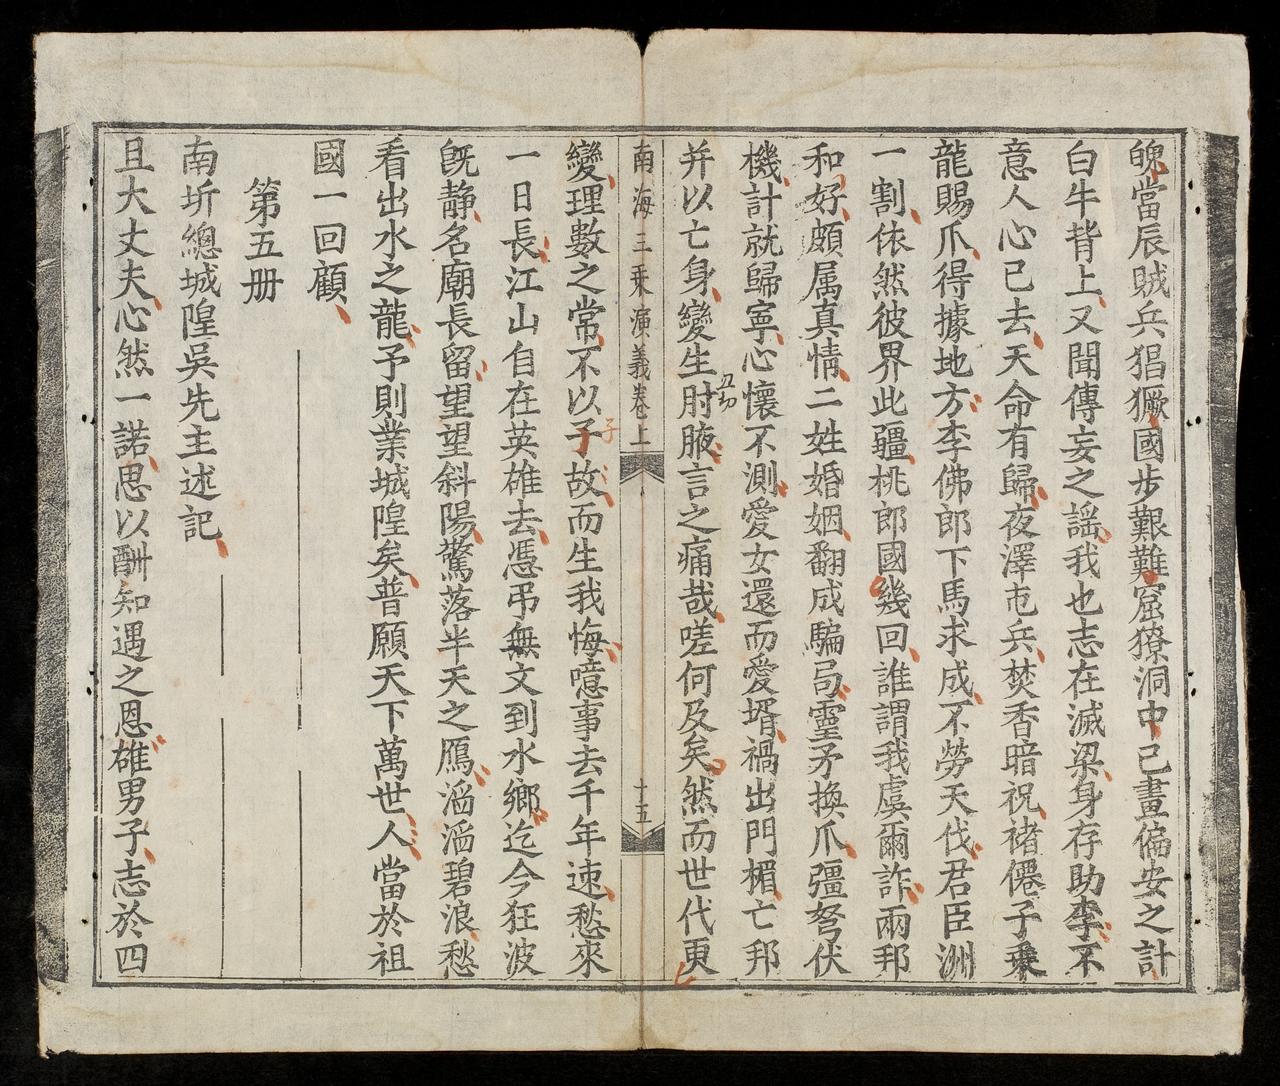 媿當辰賊兵猖獗國步艱難窟獠洞中已畫偏安之計
白牛背上又聞傳妄之謡我也志在滅梁身存助李不
意人心已去天命有歸夜澤屯兵焚香暗祝褚僊子乗
龍賜爪得據地方李佛郎下馬求成不勞天伐君臣洲
一割依然彼界此疆桃郎國幾回誰謂我虞爾詐兩邦
和好頗属真情二姓婚姻翻成騙局靈矛換爪彊弩伏
機計就歸寧心懷不測愛女還而愛壻禍出門楣亡邦
并以亡身變生肘腋言之痛哉嗟何及矣然而世代更
丑切
南海三乘演義卷上
十五
變理數之常不以子故而生我悔噫事去千年速愁來
子
一日長江山自在英雄去憑吊無文到水鄉迄今狂波
旣静名廟長留望望斜陽驚落半天之鴈滔滔碧浪愁
看出水之龍予則業城隍矣普願天下萬世人當於祖
國一回顧
第五册
南圻總城隍吳先主述記
且大丈夫心然一諾思以酬知遇之恩雄男子志於四